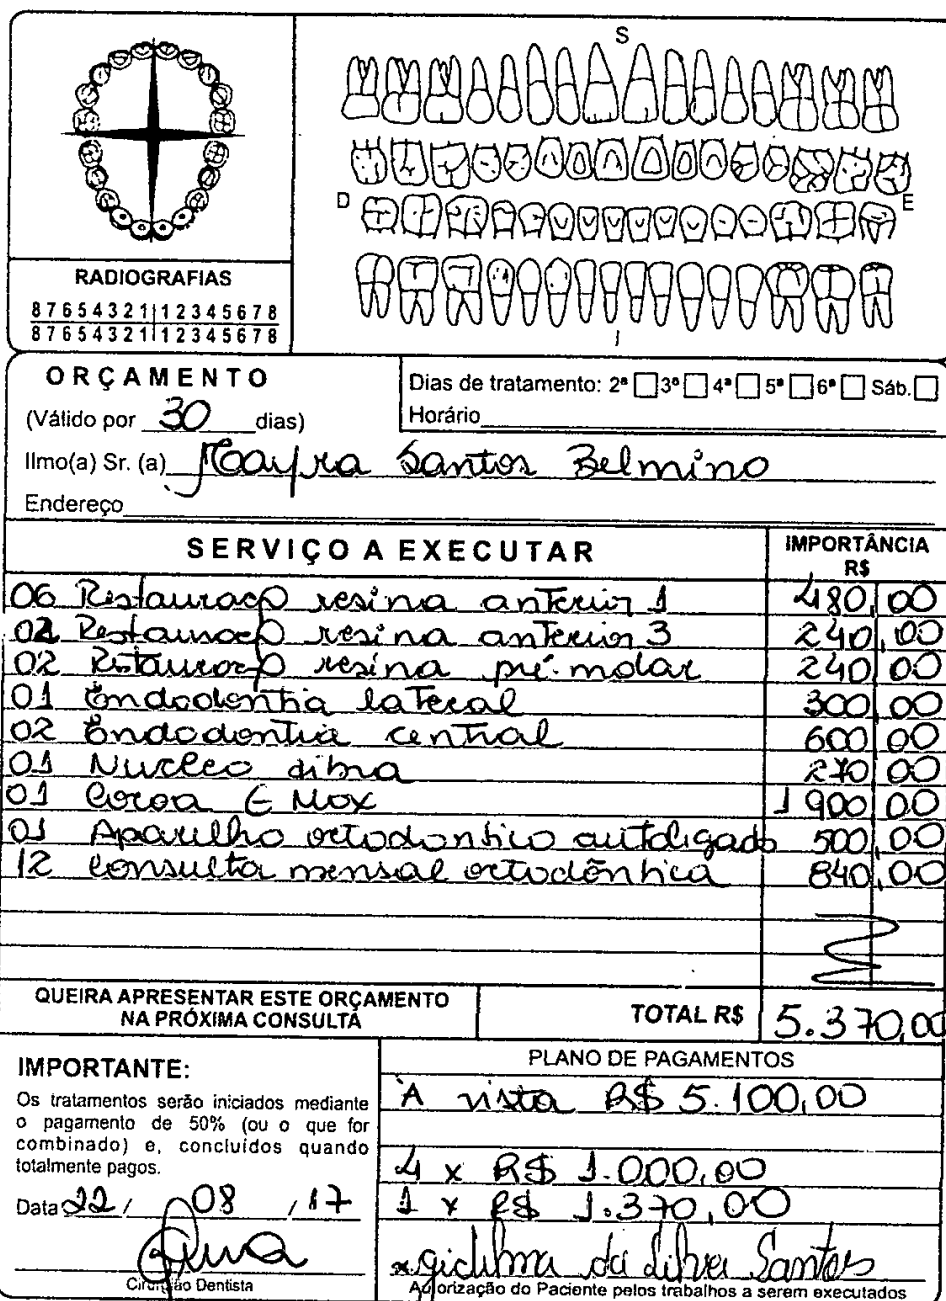 S
D
E
I
RADIOGRAFIAS
8 7 6 5 4 3 2 1 | 1 2 3 4 5 6 7 8
8 7 6 5 4 3 2 1 | 1 2 3 4 5 6 7 8
ORÇAMENTO
(Válido por 30 dias)
Dias de tratamento: 2ª 3ª 4ª 5ª 6ª Sáb.
Horário
Ilmo(a) Sr. (a) Tayra Santos Belmino
Endereço
SERVIÇO A EXECUTAR IMPORTÂNCIA R$
06 Restauração resina anterior 1 480,00
02 Restauração resina anterior 3 240,00
02 Restauração resina pré-molar 240,00
01 Endodontia lateral 300,00
02 Endodontia central 600,00
01 Nucleo fibra 270,00
01 Coroa E Max 1 900,00
01 Aparelho ortodontico autoligado 500,00
12 consulta mensal ortodôntica 840,00
QUEIRA APRESENTAR ESTE ORÇAMENTO
NA PRÓXIMA CONSULTA
TOTAL R$ 5.370,00
IMPORTANTE:
Os tratamentos serão iniciados mediante
o pagamento de 50% (ou o que for
combinado) e, concluídos quando
totalmente pagos.
Data 22/ 08 / 17
Cirurgião Dentista
PLANO DE PAGAMENTOS
À vista R$ 5.100,00
4 x R$ 1.000,00
1 x R$ 1.370,00
x gidilma da Silva Santos
Autorização do Paciente pelos trabalhos a serem executados